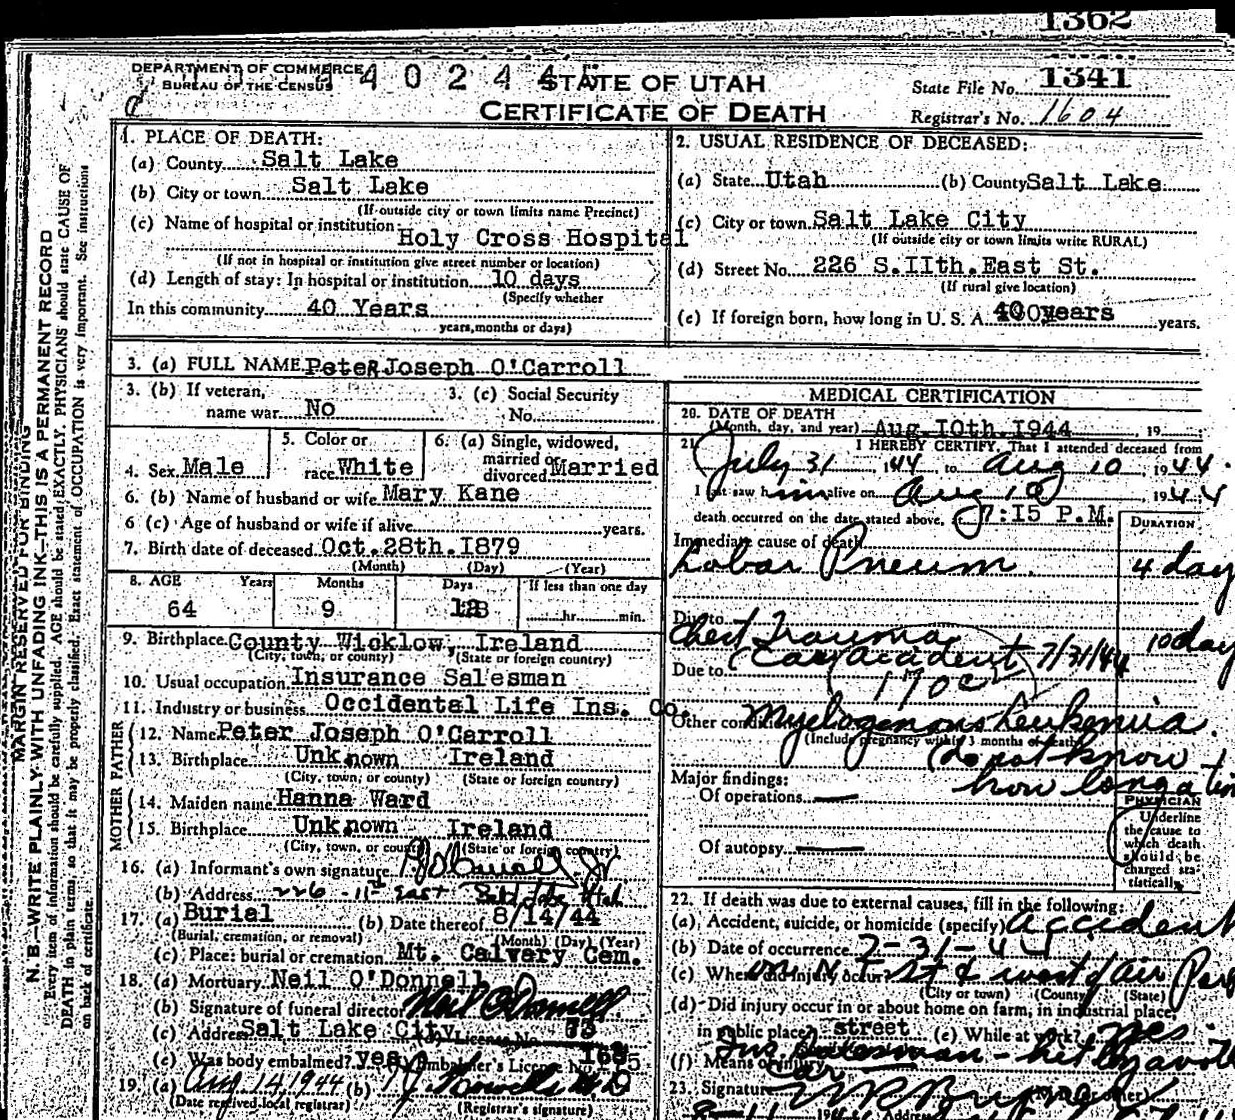 1362
DEPARTMENT OF COMMERCE
BUREAU OF THE CENSUS
4 0 2 4 4
STATE OF UTAH
CERTIFICATE OF DEATH
State File No. 1341
Registrar's No. 1604
MARGIN RESERVED FOR BINDING
N. B.—WRITE PLAINLY WITH UNFADING INK—THIS IS A PERMANENT RECORD
Every item of information should be carefully supplied. AGE should be stated EXACTLY. PHYSICIANS should state CAUSE OF
DEATH in plain terms, so that it may be properly classified. Exact statement of OCCUPATION is very important. See instructions
on back of certificate.
1. PLACE OF DEATH:
(a) County Salt Lake
(b) City or town Salt Lake
(If outside city or town limits name Precinct)
(c) Name of hospital or institution:
Holy Cross Hospital
(If not in hospital or institution give street number or location)
(d) Length of stay: In hospital or institution 10 days
(Specify whether
In this community 40 Years
years, months or days)
2. USUAL RESIDENCE OF DECEASED:
(a) State Utah (b) County Salt Lake
(c) City or town Salt Lake City
(If outside city or town limits write RURAL)
(d) Street No. 226 S.IIth.East St.
(If rural give location)
(e) If foreign born, how long in U. S. A. 40 years years.
3. (a) FULL NAME PeteR Joseph O'Carroll
3. (b) If veteran,
name war No
3. (c) Social Security
No.
4. Sex Male
5. Color or
race White
6. (a) Single, widowed,
married or
divorced Married
6. (b) Name of husband or wife Mary Kane
6 (c) Age of husband or wife if alive years.
7. Birth date of deceased Oct.28th.I879
(Month) (Day) (Year)
8. AGE Years Months Days If less than one day
64 9 hr. min.
9. Birthplace County Wicklow, Ireland
(City, town, or county) (State or foreign country)
10. Usual occupation Insurance Salesman
11. Industry or business Occidental Life Ins. Co.
FATHER
12. Name Peter Joseph O'Carroll
13. Birthplace Unknown Ireland
(City, town, or county) (State or foreign country)
MOTHER
14. Maiden name Hanna Ward
15. Birthplace Unknown Ireland
(City, town, or county) (State or foreign country)
16. (a) Informant's own signature
(b) Address 226 - 11th East Salt Lake Utah
17. (a) Burial (b) Date thereof 8/14/44
(Burial, cremation, or removal) (Month) (Day) (Year)
(c) Place: burial or cremation Mt. Calvery Cem.
18. (a) Mortuary Neil O'Donnell
(b) Signature of funeral director Neil O'Donnell
(c) Address Salt Lake City License No. 73
(e) Was body embalmed? yes Embalmer's License
19. (a) Aug 14, 1944 (b)
(Date received local registrar) (Registrar's signature)
MEDICAL CERTIFICATION
20. DATE OF DEATH
(Month, day, and year) Aug.I0th.I944, 19
21. I HEREBY CERTIFY, That I attended deceased from
July 31, 1944 to Aug 10, 1944.
I last saw him alive on Aug 10, 1944
death occurred on the date stated above, at 7:I5 P.M.
DURATION
Immediate cause of death
Lobar Pneum. 4 day
Due to
Chest Trauma 10 day
(Car accident 7/31/44
Due to
170c
Other conditions Myelogenous Leukemia.
(Include pregnancy within 3 months of death)
(do not know
how long a
Major findings:
Of operations —
Of autopsy —
PHYSICIAN
Underline
the cause to
which death
should be
charged sta-
tistically.
22. If death was due to external causes, fill in the following:
(a) Accident, suicide, or homicide (specify) accident
(b) Date of occurrence 7-31-44
(c) Where did injury occur
(City or town) (County) (State)
(d) Did injury occur in or about home on farm, in industrial place,
in public place? street (e) While at work? yes.
Ins Salesman - hit by auto
(f) Means of injury
23. Signature